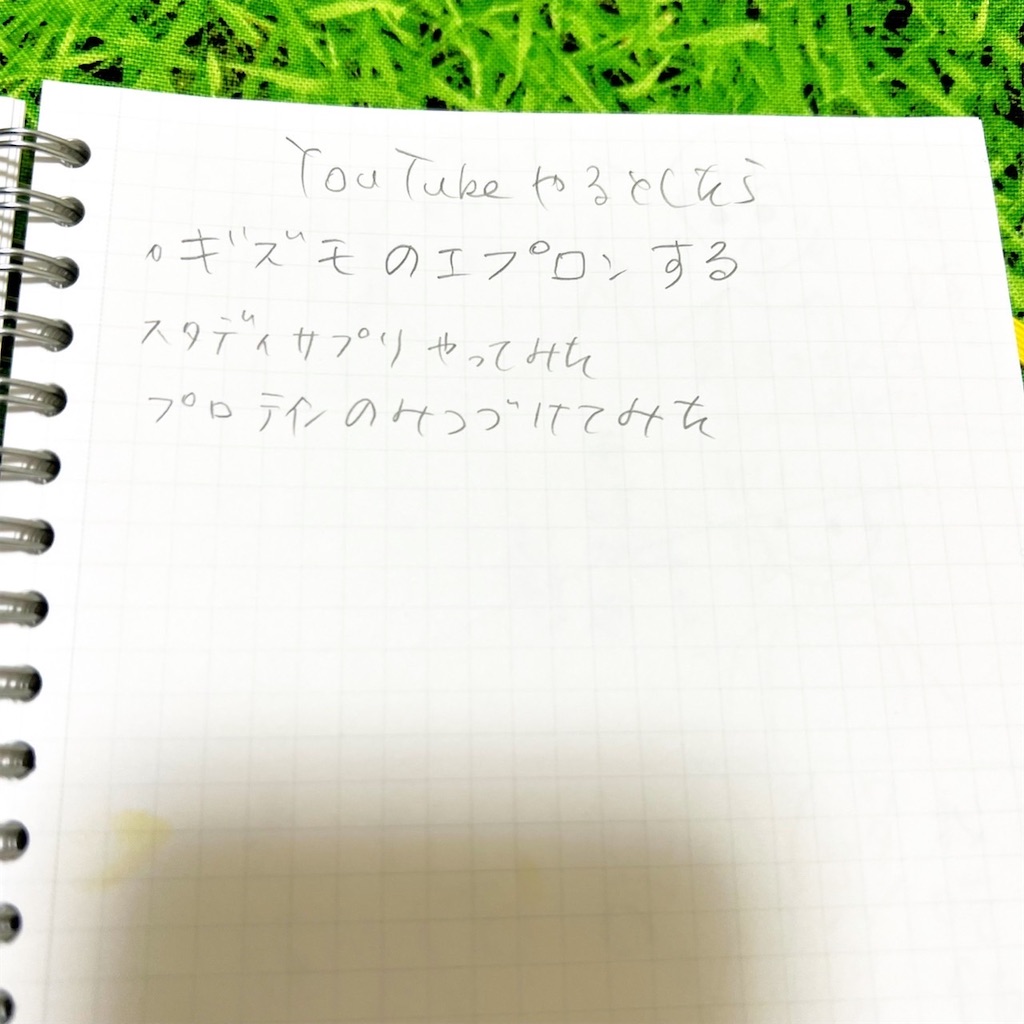 YouTubeやるとしたら
・ギズモのエプロンする
スタディサプリやってみた
プロテインのみつづけてみた